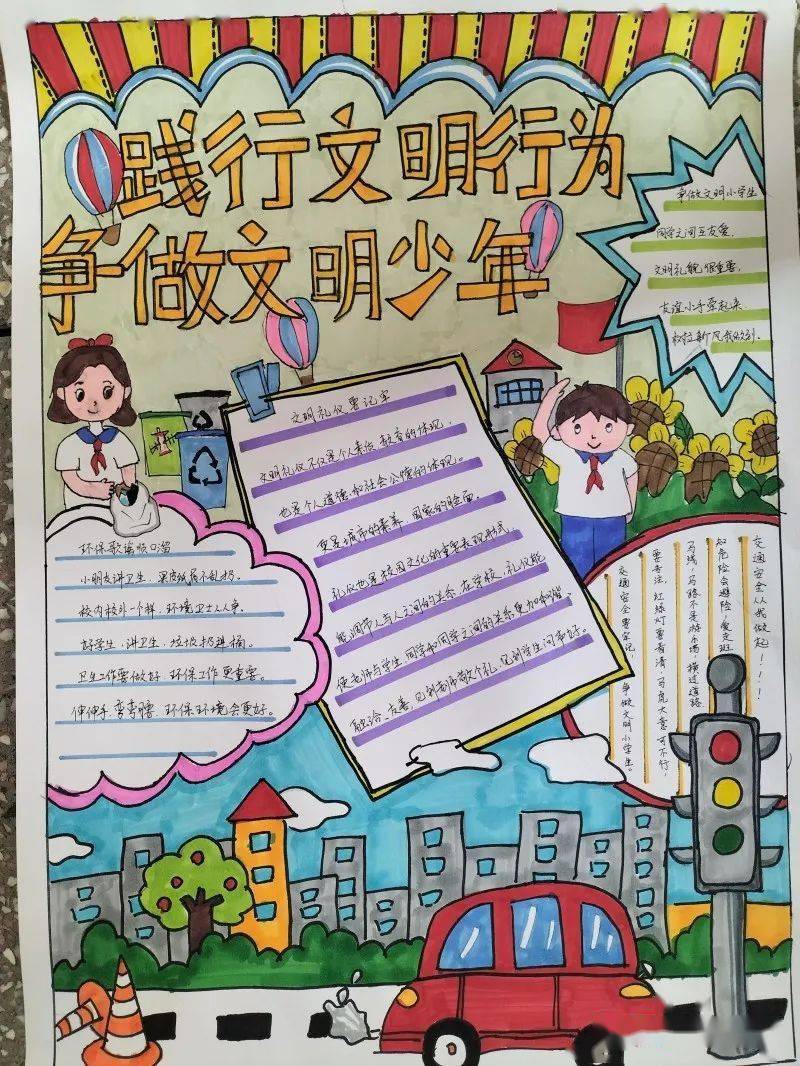 践行文明行为
争做文明少年
争做文明小学生
同学之间互友爱，
文明礼貌很重要，
友谊小手牵起来，
校园新风我做到。
文明礼仪要记牢
文明礼仪不仅是个人素质、教育的体现，
也是个人道德、和社会公德的体现。
更是城市的素养、国家的脸面。
礼仪也是校园文化的重要表现形式。
能调节人与人之间的关系，在学校，礼仪能
使老师与学生、同学和同学之间的关系更加和谐、
融洽、友善，见到老师敬个礼，见到学生问声好。
环保歌谣顺口溜
小朋友讲卫生，果皮纸屑不乱扔。
校内校外一个样，环境卫士人人争。
好学生，讲卫生，垃圾扔进桶。
卫生工作要做好，环保工作更重要。
伸伸手，弯弯腰，环保环境会更好。
交通安全从我做起！！！
知危险会避险，爱走斑
马线，马路不是游乐场，横过道路
要专注，红绿灯要看清，马虎大意可不行，
交通安全要牢记，争做文明小学生。